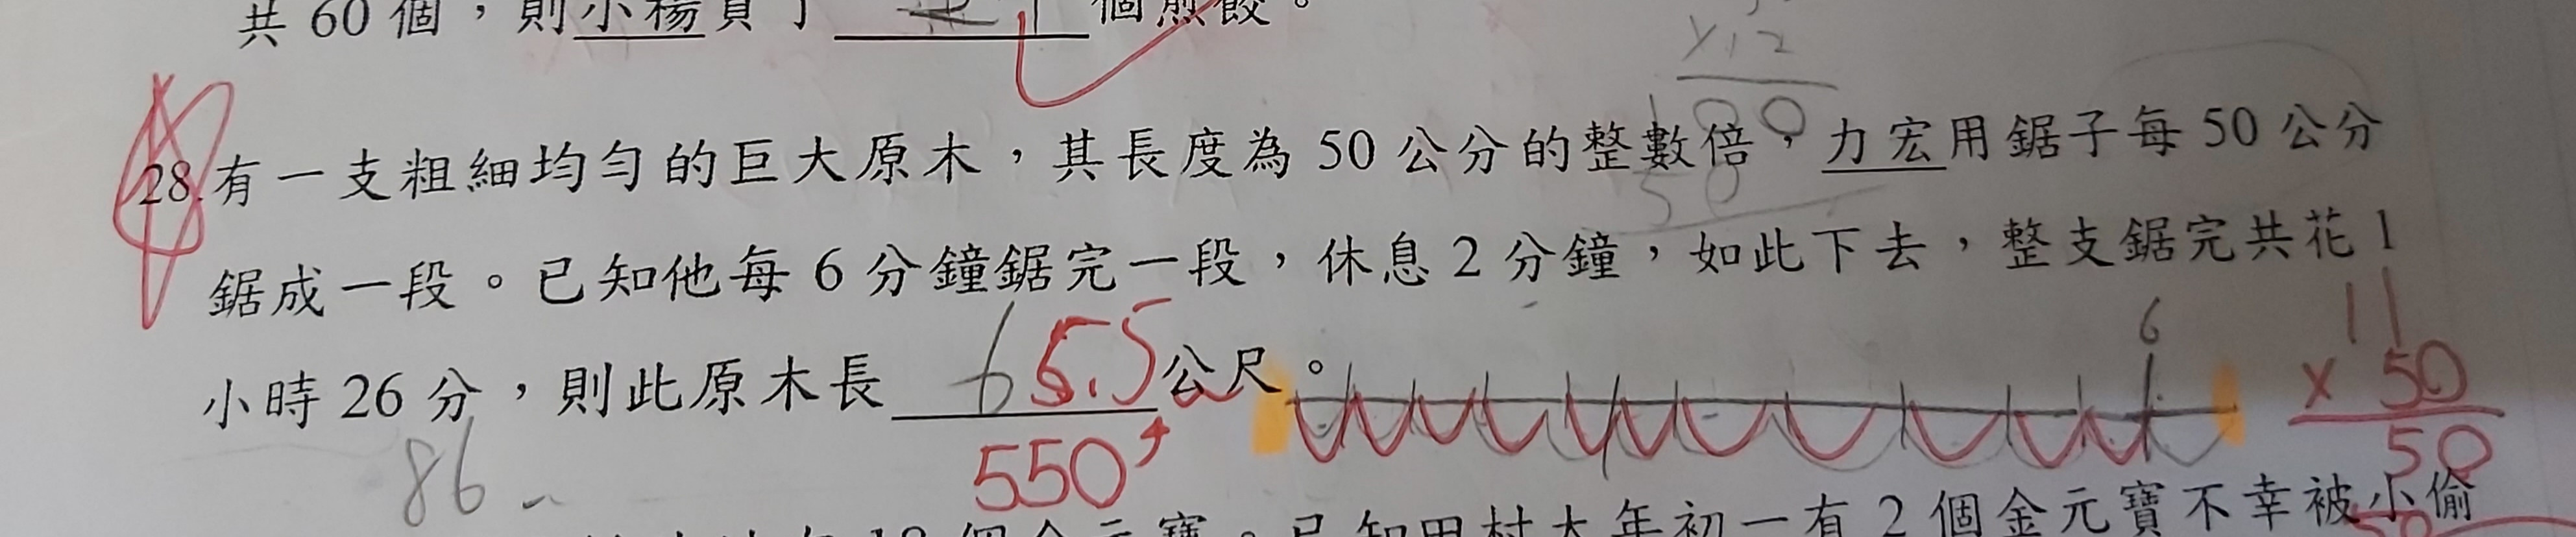 共 60 個，則小楊買了 個煎餃。
×12
00
50
28.有一支粗細均勻的巨大原木，其長度為 50 公分的整數倍，力宏用鋸子每 50 公分
鋸成一段。已知他每 6 分鐘鋸完一段，休息 2 分鐘，如此下去，整支鋸完共花 1
小時 26 分，則此原木長 6 5.5 公尺。
6
11
× 50
50
86
550
個金元寶。已知田村大年初一有 2 個金元寶不幸被小偷